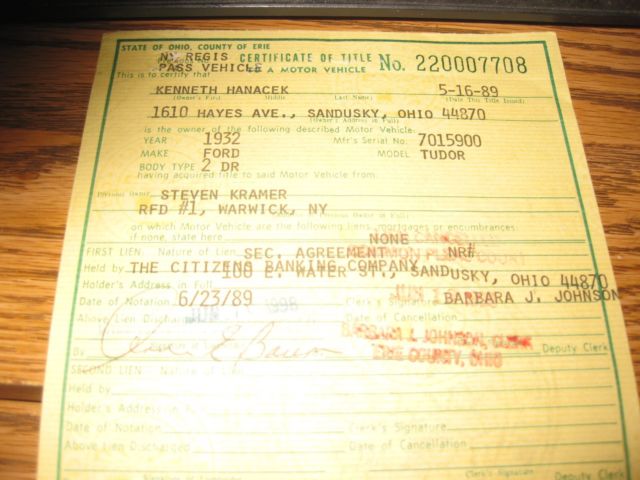 STATE OF OHIO, COUNTY OF ERIE
NY REGIS CERTIFICATE OF TITLE No. 220007708
PASS VEHICLE TO A MOTOR VEHICLE
This is to certify that
KENNETH HANACEK 5-16-89
(Owner's First Middle Last Name) (Date This Title Issued)
1610 HAYES AVE., SANDUSKY, OHIO 44870
(Owner's Address in Full)
is the owner of the following described Motor Vehicle:
YEAR 1932 Mfr's Serial No. 7015900
MAKE FORD MODEL TUDOR
BODY TYPE 2 DR
having acquired title to said Motor Vehicle from:
Previous Owner STEVEN KRAMER
RFD #1, WARWICK, NY
Previous Owner in Full
on which Motor Vehicle are the following liens, mortgages or encumbrances:
if none, state here NONE
FIRST LIEN: Nature of Lien SEC. AGREEMENT NR#
Held by THE CITIZENS BANKING COMPANY
Holder's Address in Full 100 E. WATER ST., SANDUSKY, OHIO 44870
Date of Notation 6/23/89 Clerk's BARBARA J. JOHNSON
Above Lien Discharged 1998 Date of Cancellation
BARBARA J. JOHNSON, CLERK
By Deputy Clerk
ERIE COUNTY, OHIO
SECOND LIEN: Nature of Lien
Held by
Holder's Address in Full
Date of Notation Clerk's Signature
Above Lien Discharged Date of Cancellation
Clerk's Signature Deputy Clerk